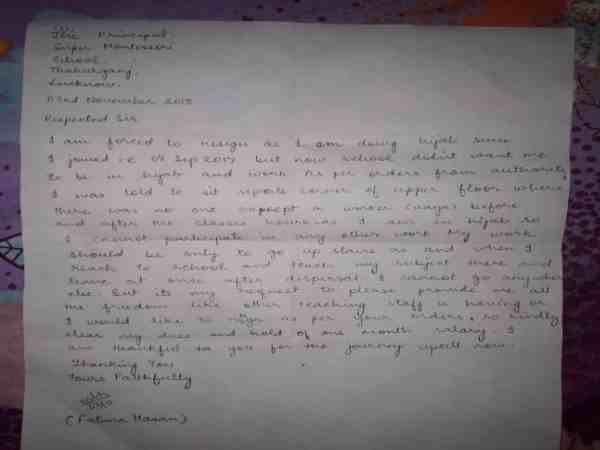 The Principal,
Super Montessori
School,
Thakurganj,
Lucknow.
03rd November 2018
Respected Sir
I am forced to resign as I am doing hijab since
I joined i.e 04 Sep 2017 but now school didn't want me
to be in hijab and work As per orders from authority
I was told to sit sports corner of upper floor where
there was no one expcept a worker (aaya) before
and after the classes hours. as I am in hijab so
I cannot participate in any other work My work
should be only to go up stairs as and when I
reach to school and teach my subject there and
leave at once after dispersal I cannot go anywhere
else. But its my request to please provide me all
the freedom like other teaching staff is having or
I would like to resign as per your orders, so kindly
clear my dues and hold of one month salary. I
am thankful to you for the journey upto now.
Thanking You
Yours Faithfully
(Fatima Hasan)